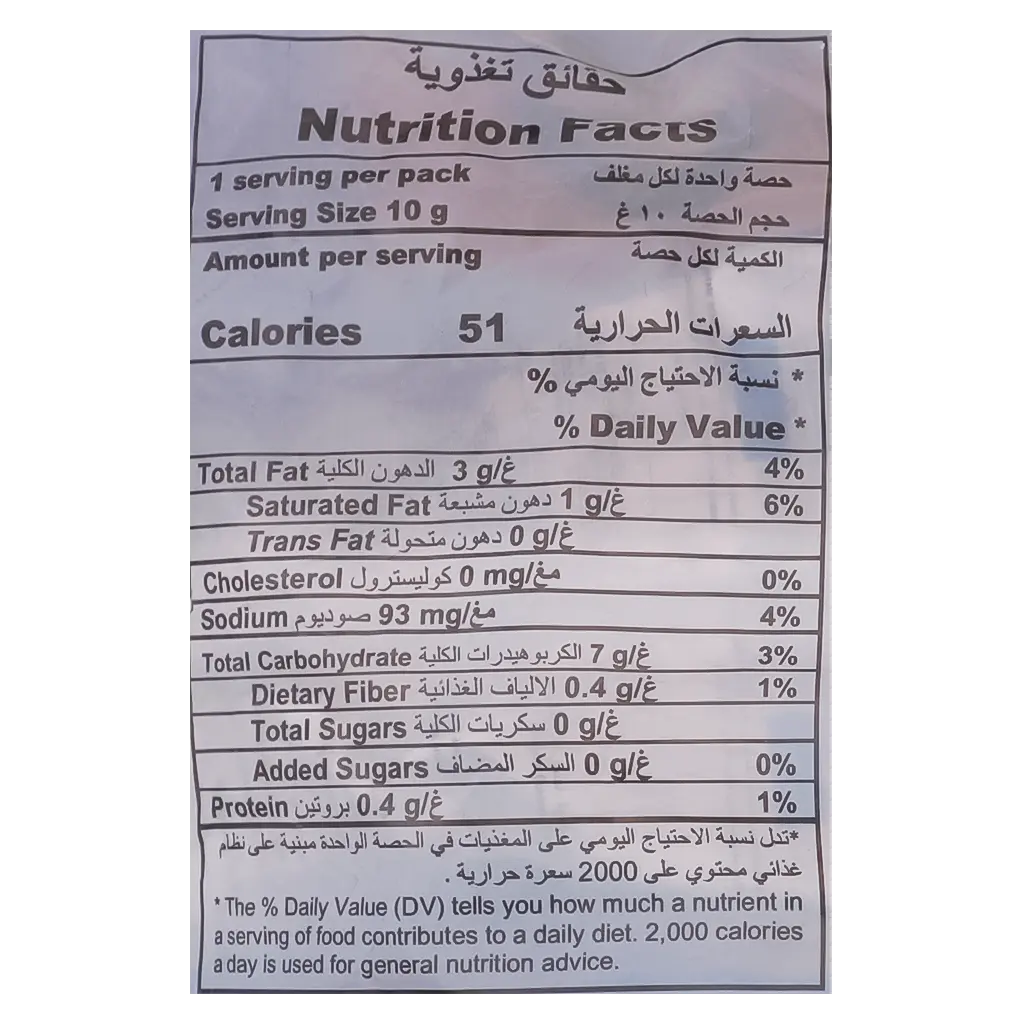 حقائق تغذوية
Nutrition Facts
1 serving per pack حصة واحدة لكل مغلف
Serving Size 10 g حجم الحصة ١٠ غ
Amount per serving الكمية لكل حصة
Calories 51 السعرات الحرارية
* نسبة الاحتياج اليومي %
% Daily Value *
Total Fat الدهون الكلية 3 g/غ 4%
Saturated Fat دهون مشبعة 1 g/غ 6%
Trans Fat دهون متحولة 0 g/غ
Cholesterol كوليسترول 0 mg/مغ 0%
Sodium صوديوم 93 mg/مغ 4%
Total Carbohydrate الكربوهيدرات الكلية 7 g/غ 3%
Dietary Fiber الالياف الغذائية 0.4 g/غ 1%
Total Sugars سكريات الكلية 0 g/غ
Added Sugars السكر المضاف 0 g/غ 0%
Protein بروتين 0.4 g/غ 1%
*تدل نسبة الاحتياج اليومي على المغذيات في الحصة الواحدة مبنية على نظام
غذائي محتوي على 2000 سعرة حرارية .
* The % Daily Value (DV) tells you how much a nutrient in
a serving of food contributes to a daily diet. 2,000 calories
a day is used for general nutrition advice.